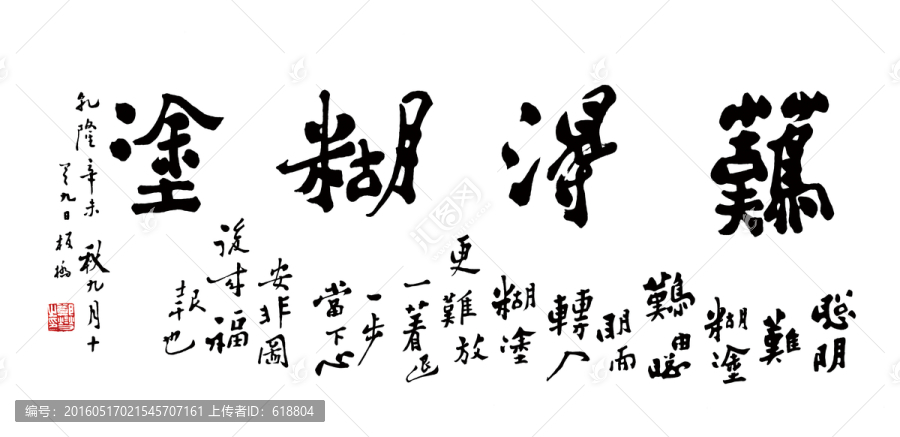 難得糊塗
聰明
難
糊塗
難由聰
明而
轉入
糊塗
更難放
一著退
一步
當下心
安非圖
後來福
報也
乾隆辛未秋九月十
九日板橋
编号：20160517021545707161 上传者ID：618804